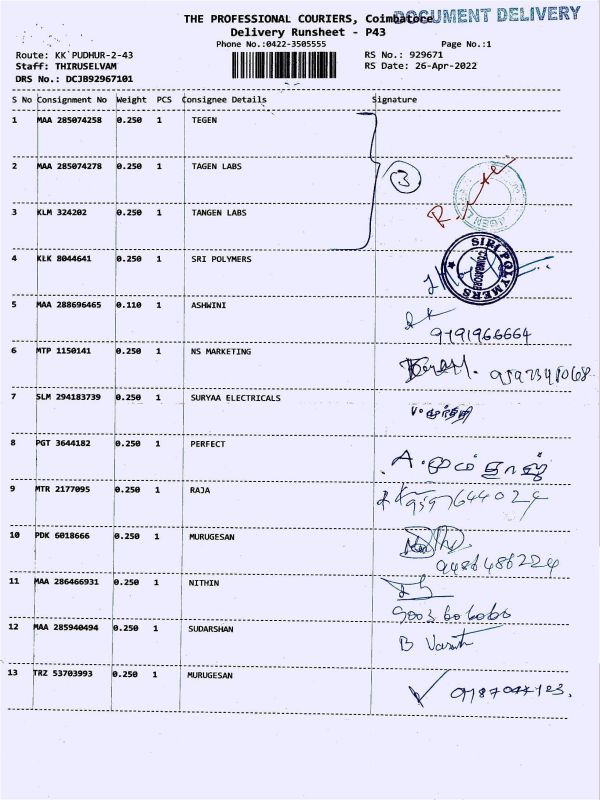 THE PROFESSIONAL COURIERS, Coimbatore
DOCUMENT DELIVERY
Delivery Runsheet - P43
Phone No.:0422-3505555 Page No.:1
Route: KK PUDHUR-2-43 RS No.: 929671
Staff: THIRUSELVAM RS Date: 26-Apr-2022
DRS No.: DCJB92967101
S No Consignment No Weight PCS Consignee Details Signature
1 MAA 285074258 0.250 1 TEGEN
2 MAA 285074278 0.250 1 TAGEN LABS
3
3 KLM 324202 0.250 1 TANGEN LABS
4 KLK 8044641 0.250 1 SRI POLYMERS
SIRI POLYMERS COIMBATORE
5 MAA 288696465 0.110 1 ASHWINI
9791966664
6 MTP 1150141 0.250 1 NS MARKETING
7 SLM 294183739 0.250 1 SURYAA ELECTRICALS
8 PGT 3644182 0.250 1 PERFECT
9 MTR 2177095 0.250 1 RAJA
9597644024
10 PDK 6018666 0.250 1 MURUGESAN
9486486224
11 MAA 286466931 0.250 1 NITHIN
12 MAA 285940494 0.250 1 SUDARSHAN
B Vasanth
13 TRZ 53703993 0.250 1 MURUGESAN